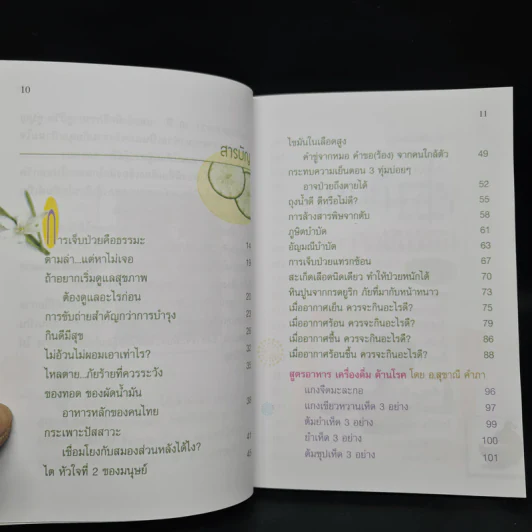 10
สารบัญ
การเจ็บป่วยคือธรรมะ
ตามล่า...แต่หาไม่เจอ
ถ้าอยากเริ่มดูแลสุขภาพ
ต้องดูแลอะไรก่อน
การขับถ่ายสำคัญกว่าการบำรุง
กินดีมีสุข
ไม่อ้วนไม่ผอมเอาเท่าไร?
ไหลตาย...ภัยร้ายที่ควรระวัง
ของทอด ของผัดน้ำมัน
อาหารหลักของคนไทย
กระเพาะปัสสาวะ
เชื่อมโยงกับสมองส่วนหลังได้ไง?
ไต หัวใจที่ 2 ของมนุษย์
11
ไขมันในเลือดสูง
คำขู่จากหมอ คำขอ(ร้อง) จากคนใกล้ตัว 49
กระทบความเย็นตอน 3 ทุ่มบ่อยๆ
อาจป่วยถึงตายได้ 52
ถุงน้ำดี ดีหรือไม่ดี? 55
การล้างสารพิษจากตับ 58
ภูษิตบำบัด 61
อัญมณีบำบัด 63
การเจ็บป่วยแทรกซ้อน 67
สะเก็ดเลือดนิดเดียว ทำให้ป่วยหนักได้ 70
หินปูนจากกรดยูริก ภัยที่มากับหน้าหนาว 73
เมื่ออากาศเย็น ควรจะกินอะไรดี? 75
เมื่ออากาศร้อน ควรจะกินอะไรดี? 79
เมื่ออากาศชื้น ควรจะกินอะไรดี? 86
เมื่ออากาศร้อนชื้น ควรจะกินอะไรดี? 88
สูตรอาหาร เครื่องดื่ม ต้านโรค โดย อ.สุชาณี คำภา
แกงจืดมะละกอ 96
แกงเขียวหวานเห็ด 3 อย่าง 97
ต้มยำเห็ด 3 อย่าง 99
ยำเห็ด 3 อย่าง 100
ต้มซุปเห็ด 3 อย่าง 101